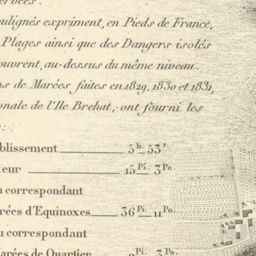 oulignés expriment, en Pieds de France,
Plages ainsi que des Dangers isolés
ouvrent, au-dessus du même niveau.
ns de Marées, faites en 1829, 1830 et 1831,
onale de l'Ile Brehat, ont fourni les
:
blissement 5h. 53'.
eur 15Pi. 3Po.
u correspondant
rées d'Equinoxes 36Pi. 11Po.
u correspondant
arées de Quartier